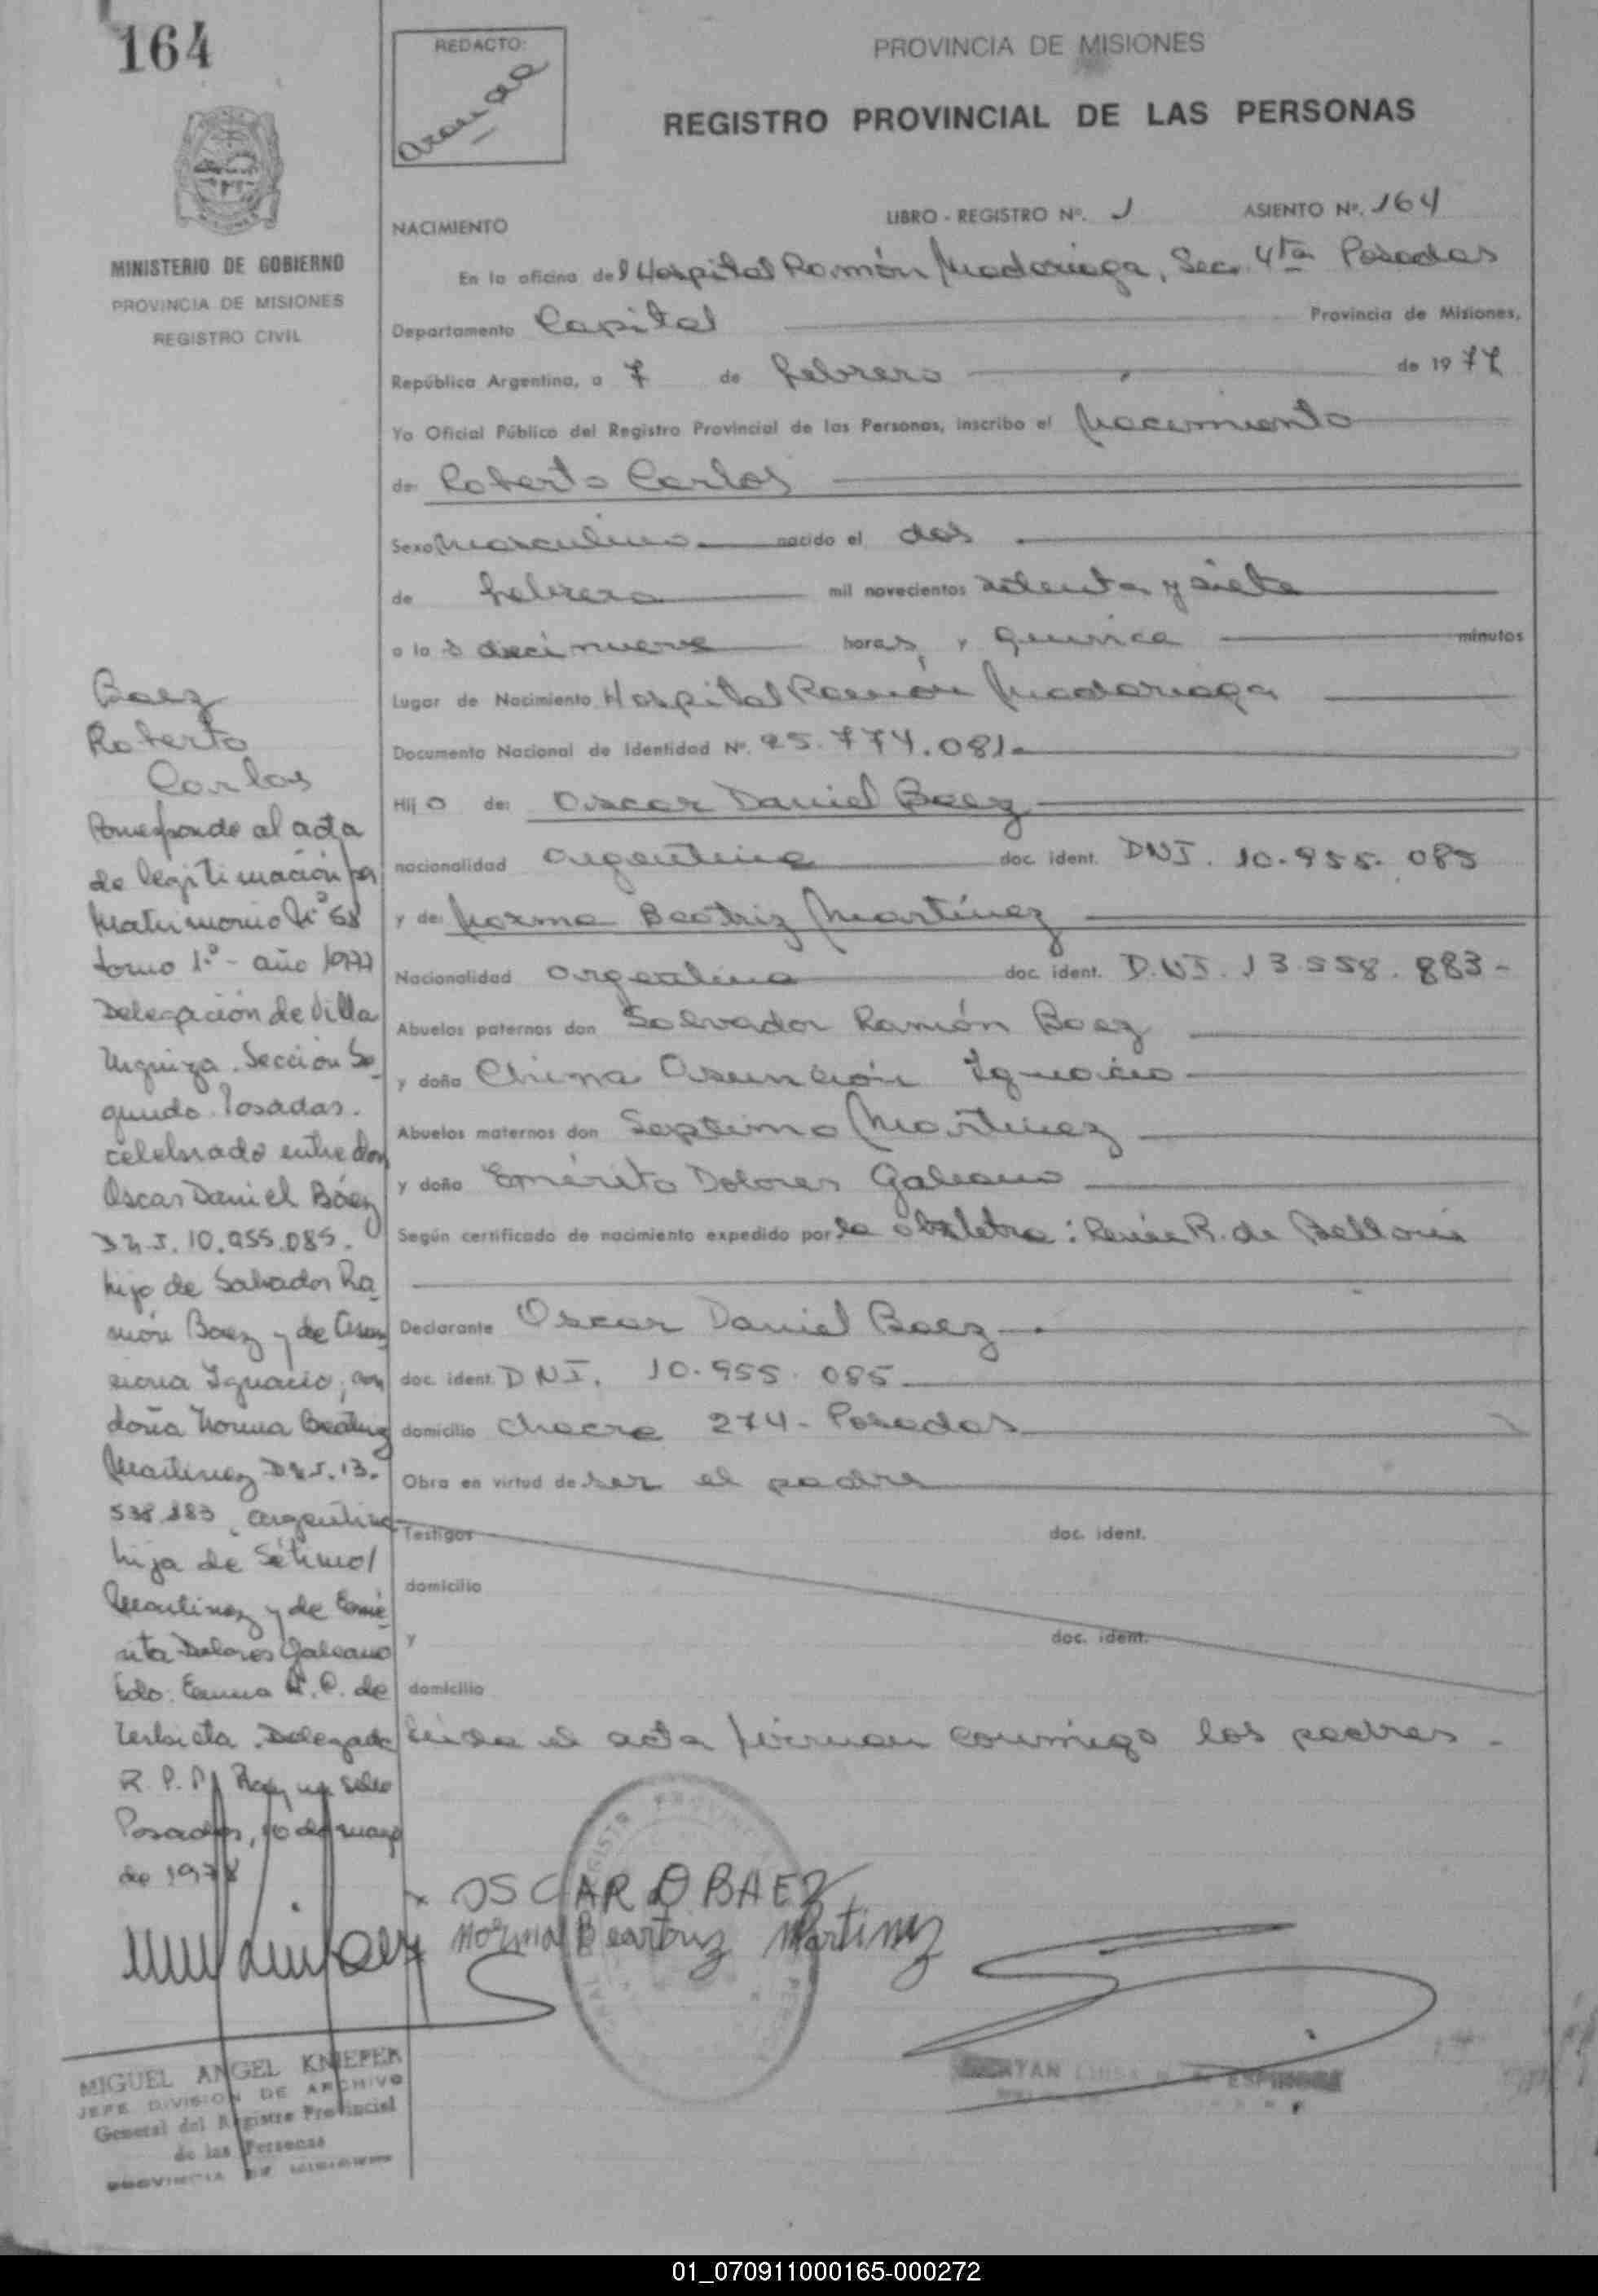 164
REDACTO:
PROVINCIA DE MISIONES
REGISTRO PROVINCIAL DE LAS PERSONAS
MINISTERIO DE GOBIERNO
PROVINCIA DE MISIONES
REGISTRO CIVIL
NACIMIENTO
LIBRO - REGISTRO Nº. 1 ASIENTO Nº. 164
En la oficina del Hospital Ramón Madariaga, Sec. 4ta Posadas
Departamento Capital Provincia de Misiones,
República Argentina, a 7 de febrero de 1977
Yo Oficial Público del Registro Provincial de las Personas, inscribo el Nacimiento
de: Roberto Carlos
Sexo Masculino nacido el dos
de febrero mil novecientos setenta y siete
a la s diecinueve horas y quince minutos
Lugar de Nacimiento Hospital Ramón Madariaga
Documento Nacional de Identidad Nº. 25.774.081.
Hij o de: Oscar Daniel Baez
nacionalidad argentina doc. ident. DNI. 10.955.085
y de: Norma Beatriz Martínez
Nacionalidad argentina doc. ident. D.NI. 13.558.883-
Abuelos paternos don Salvador Ramón Baez
y doña China Asunción Ignacio
Abuelos maternos don Septimo Martinez
y doña Emérita Dolores Galeano
Según certificado de nacimiento expedido por la obstetra: Renée R. de
Declarante Oscar Daniel Baez
doc. ident. DNI. 10.955.085
domicilio chacra 274- Posadas
Obra en virtud de ser el padre
Testigos doc. ident.
domicilio
y doc. ident.
domicilio
Leida el acta firman conmigo los padres -
Baez
Roberto
Carlos
Corresponde al acta
de legitimación por
Matrimonio Nº 68
tomo 1º - año 1977
Delegación de Villa
Urquiza. Sección Se
gunda. Posadas.
celebrado entre don
Oscar Daniel Báez
D.N.I. 10.955.085.
hijo de Salvador Ra
món Baez y de Asun
ciona Ignacio, con
doña Norma Beatriz
Martinez D.N.I. 13.
538.883, argentina
hija de Sétimo
Martinez y de Emé
rita Dolores Galeano
Fdo: Emma de
Delegada
R. P. P. Hay un sello
Posadas, 10 de mayo
de 1978
OSCAR D BAEZ
Norma Beartriz Martinez
MIGUEL ANGEL KNIEFEK
JEFE DIVISION DE ARCHIVO
General del Registro Provincial
de las Personas
PROVINCIA DE MISIONES
01_070911000165-000272